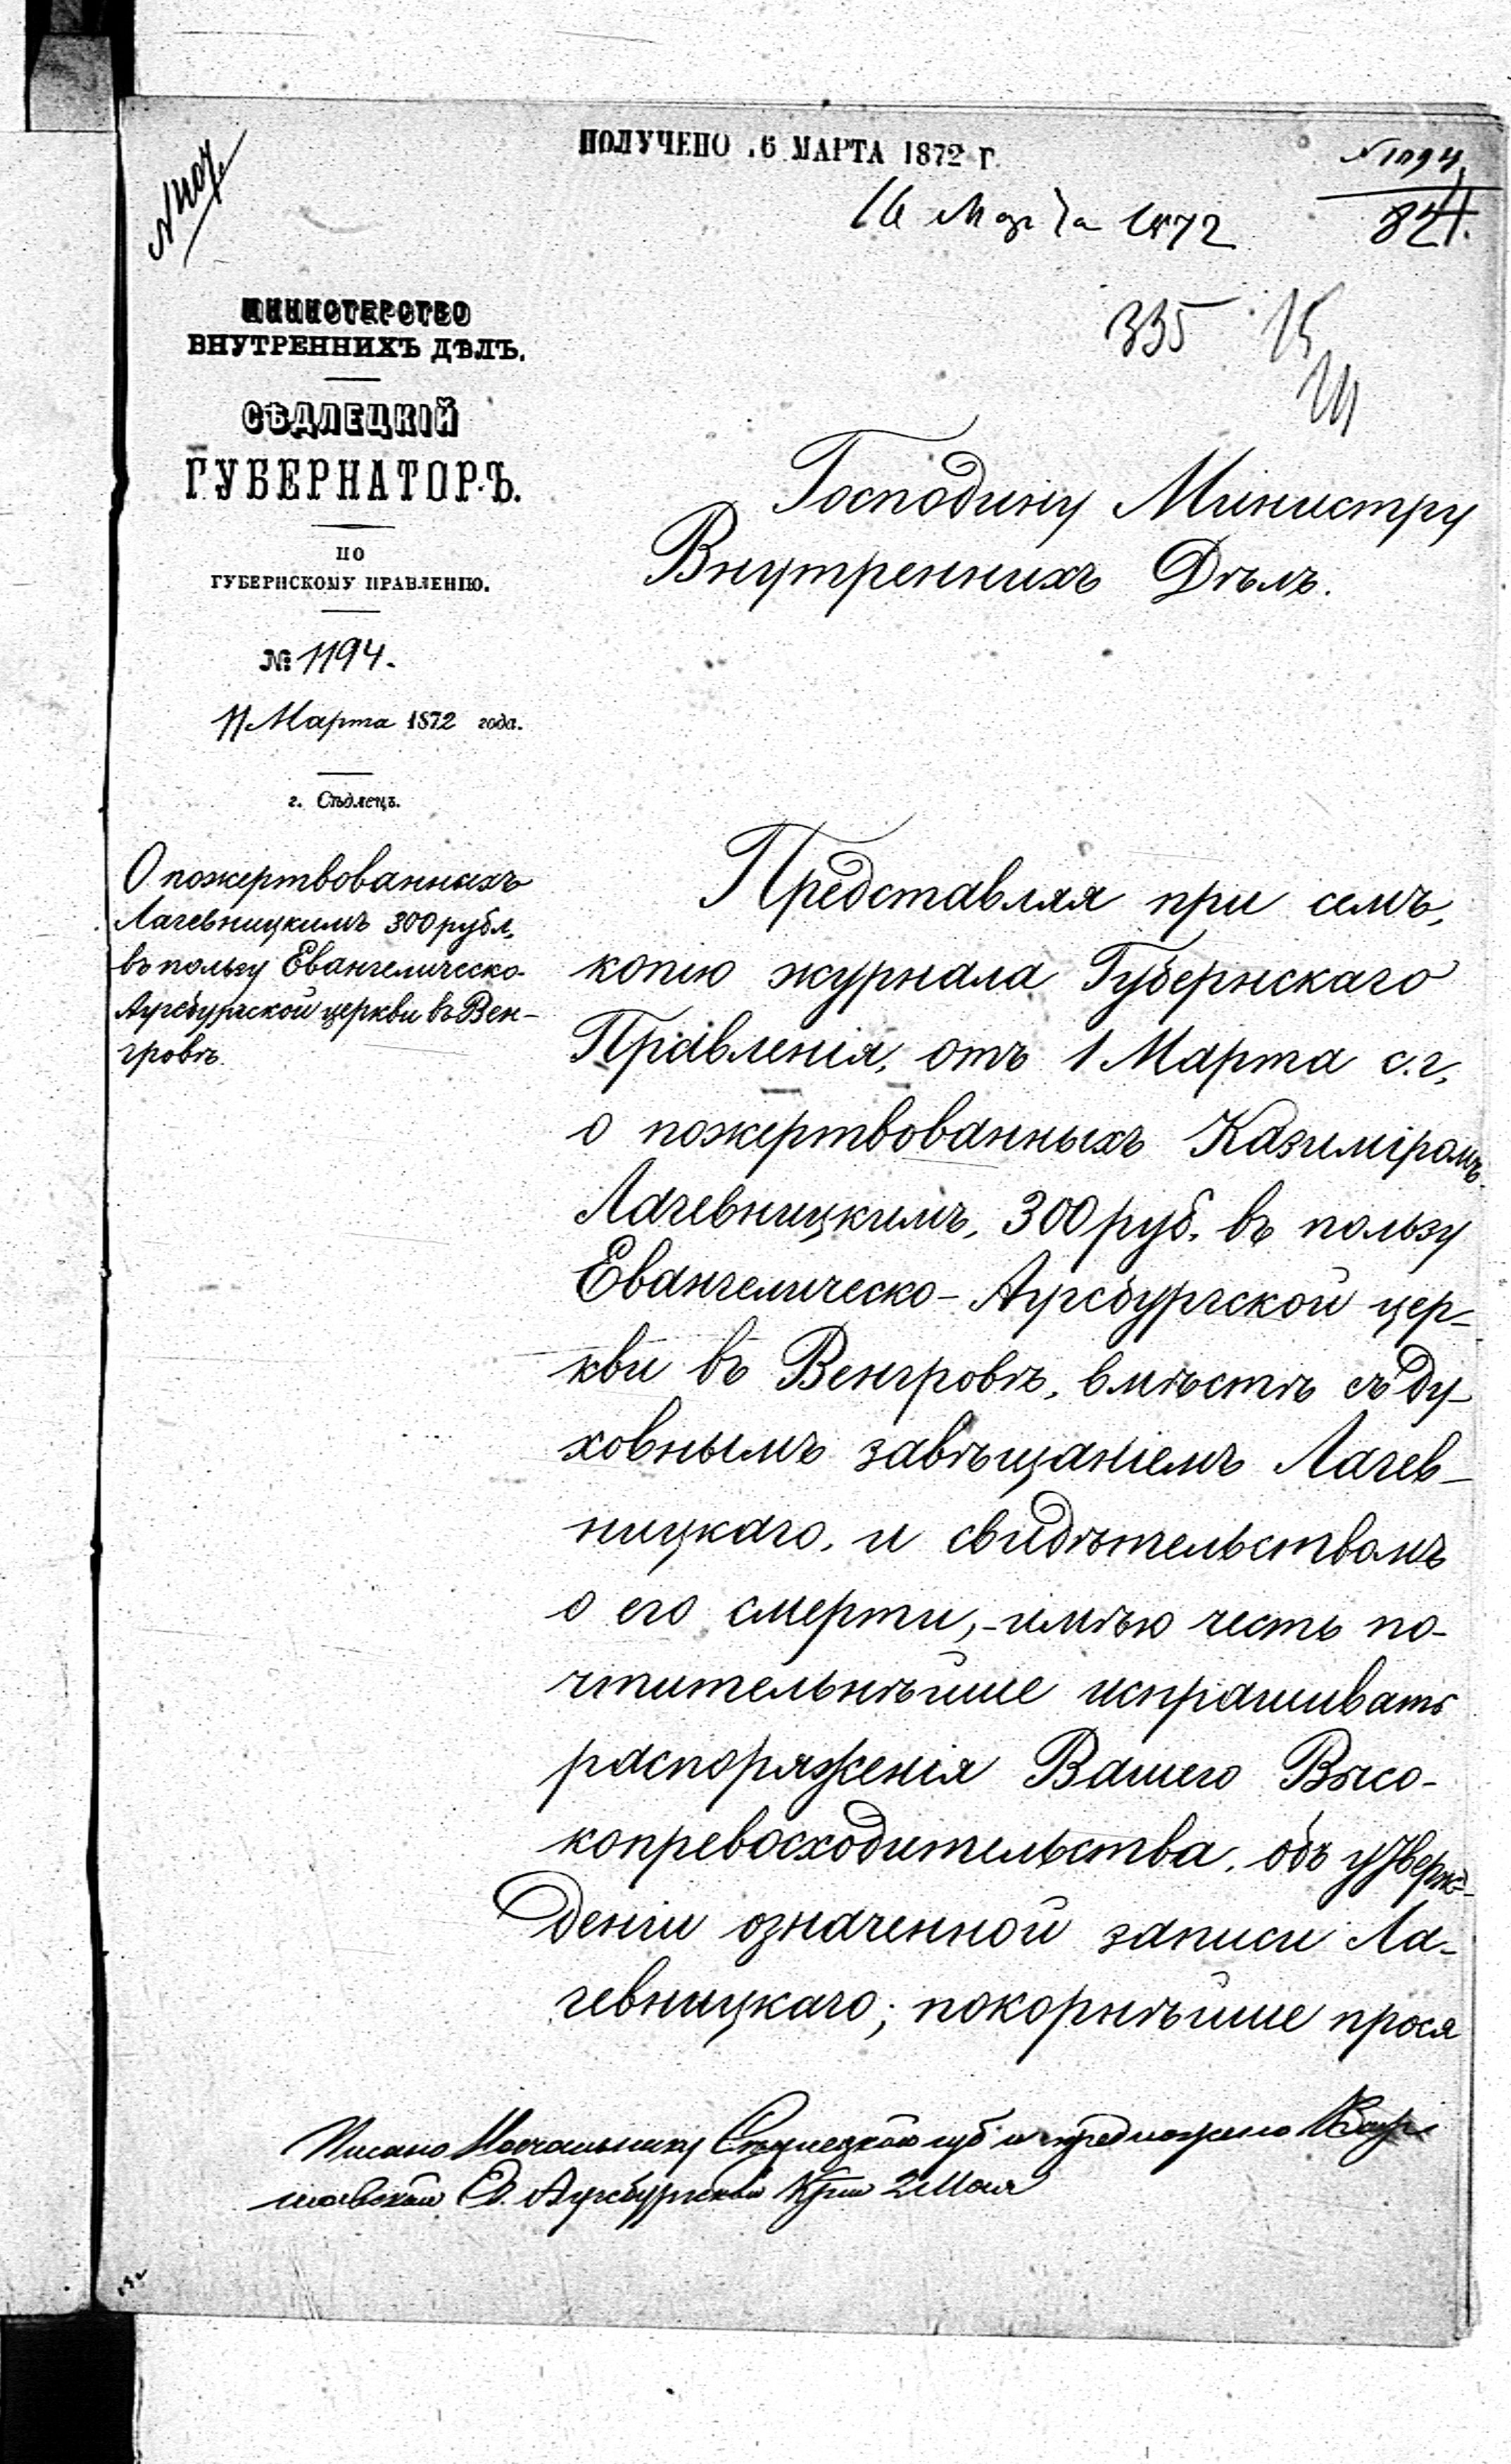 ПОЛУЧЕНО 16 МАРТА 1872 Г.
16 Марта 1872
№ 1094
824.
335 15
МИНИСТЕРСТВО
ВНУТРЕННИХЪ ДѢЛЪ.
СѢДЛЕЦКІЙ
ГУБЕРНАТОРЪ.
ПО
ГУБЕРНСКОМУ ПРАВЛЕНІЮ.
№ 1194.
11 Марта 1872 года.
г. Сѣдлецъ.
О пожертвованныхъ
Лагевницкимъ 300 рубл,
въ пользу Евангелическо-
Аугсбургской церкви въ Вен-
гровѣ.
Господину Министру
Внутреннихъ Дѣлъ.
Представляя при семъ,
копію журнала Губернскаго
Правленія, отъ 1 Марта с.г,
о пожертвованныхъ Казиміромъ
Лагевницкимъ, 300 руб. въ пользу
Евангелическо-Аугсбургской цер-
кви въ Венгровѣ, вмѣстѣ съ ду-
ховнымъ завѣщаніемъ Лагев-
ницкаго, и свидѣтельствомъ
о его смерти,-имѣю честь по-
чтительнѣйше испрашивать
распоряженія Вашего Высо-
копревосходительства, объ утверж-
деніи означенной записи Ла-
гевницкаго; покорнѣйше прося
Писано Начальнику Сѣдлецкой губ и предложено Вар
шавской Ев. Аугсбургской 2 Мая